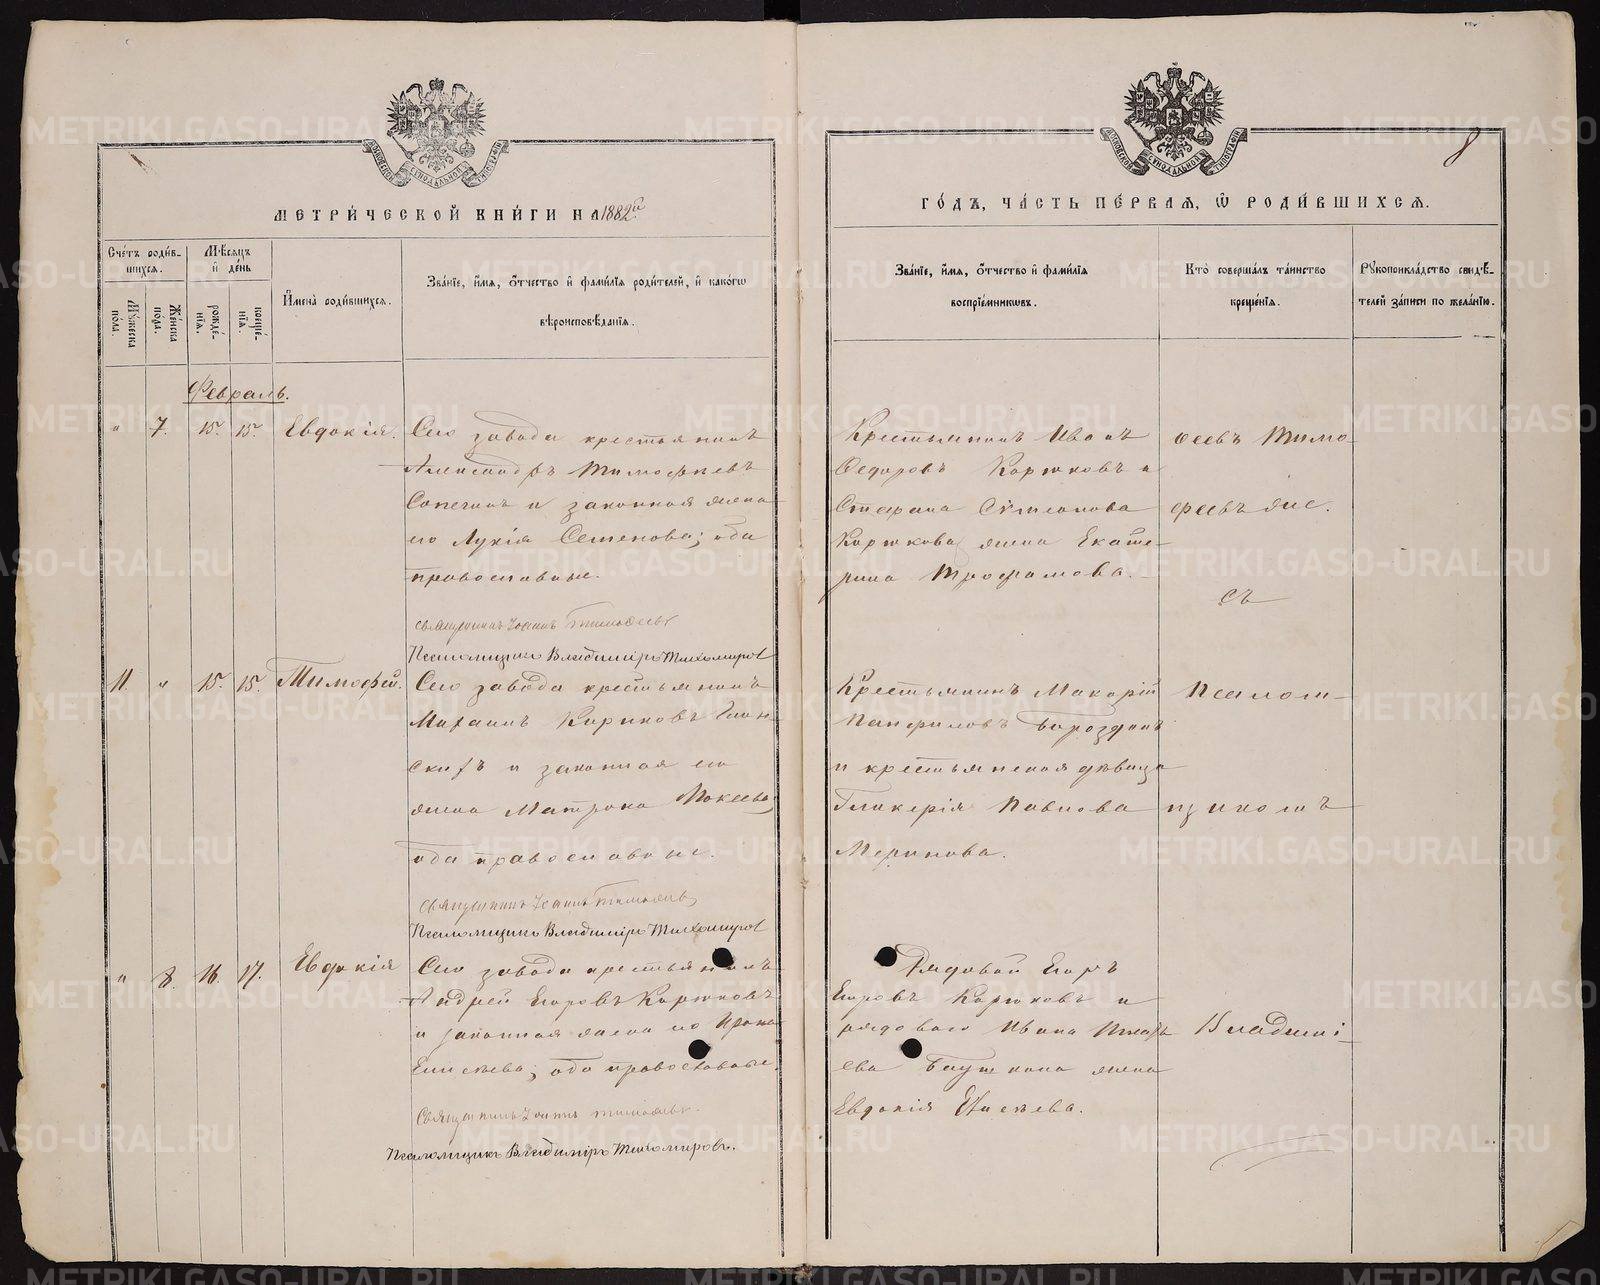 МЕТРИ́ЧЕСКОЙ КНИ́ГИ НА 1882й
ГО́ДЪ, ЧА́СТЬ ПЕ́РВАѦ, Ѡ РОДИ́ВШИХСѦ.
8
Сче́тъ роди́в-
шихся.
Мѣ́сяцъ
и҆ де́нь
Му́жеска
по́ла.
Же́нска
по́ла.
рожде́-
нїя.
креще́-
нїя.
И҆мена̀ роди́вшихся.
Зва́нїе, и҆́мя, ѻ҆́тчество и҆ фами́лїя роди́телей, и҆ како́гѡ
вѣроисповѣ́данїя.
Зва́нїе, и҆́мя, ѻ҆́тчество и҆ фами́лїя
воспрїе́мниковъ.
Кто̀ соверша́лъ та́инство
креще́нїя.
Рукоприкла́дство свидѣ́-
телей за́писи по жела́нїю.
Февраль.
" 7. 15. 15. Евдокія.
Сего завода крестьянинъ
Александръ Тимофѣевъ
и законная жена
его Лукія Семенова; оба
православные.
Священникъ Іоаннъ Тимофеевъ
Псаломщикъ Владиміръ Тихомировъ
Крестьянинъ Иванъ
Федоровъ Корюковъ и
Стефана Симеонова
Корюкова жена Екате-
рина Трофимова.
Тимо-
феевъ
съ
11. " 15. 15. Тимофей.
Сего завода крестьянинъ
Михаилъ Кириковъ
и законная его
жена Матрона Мокеева;
оба православные.
Священникъ Іоаннъ Тимофеевъ
Псаломщикъ Владиміръ Тихомировъ
Крестьянинъ Макарій
Панфиловъ Бороздинъ
и крестьянская дѣвица
Гликерія Павлова
Меринова.
Псалом-
щикомъ
" 8. 16. 17. Евдокія
Сего завода крестьянинъ
Андрей Егоровъ Корюковъ
и законная жена его
Елисѣева; оба православные.
Священникъ Іоаннъ Тимофеевъ.
Псаломщикъ Владиміръ Тихомировъ.
Рядовой Егоръ
Егоровъ Корюковъ и
рядоваго Ивана
жена
Евдокія Елисѣева.
Владимі-
METRIKI.GASO-URAL.RU